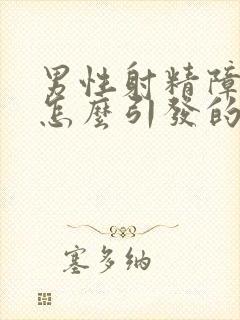 男性射精障
怎麼引發的
塞多纳